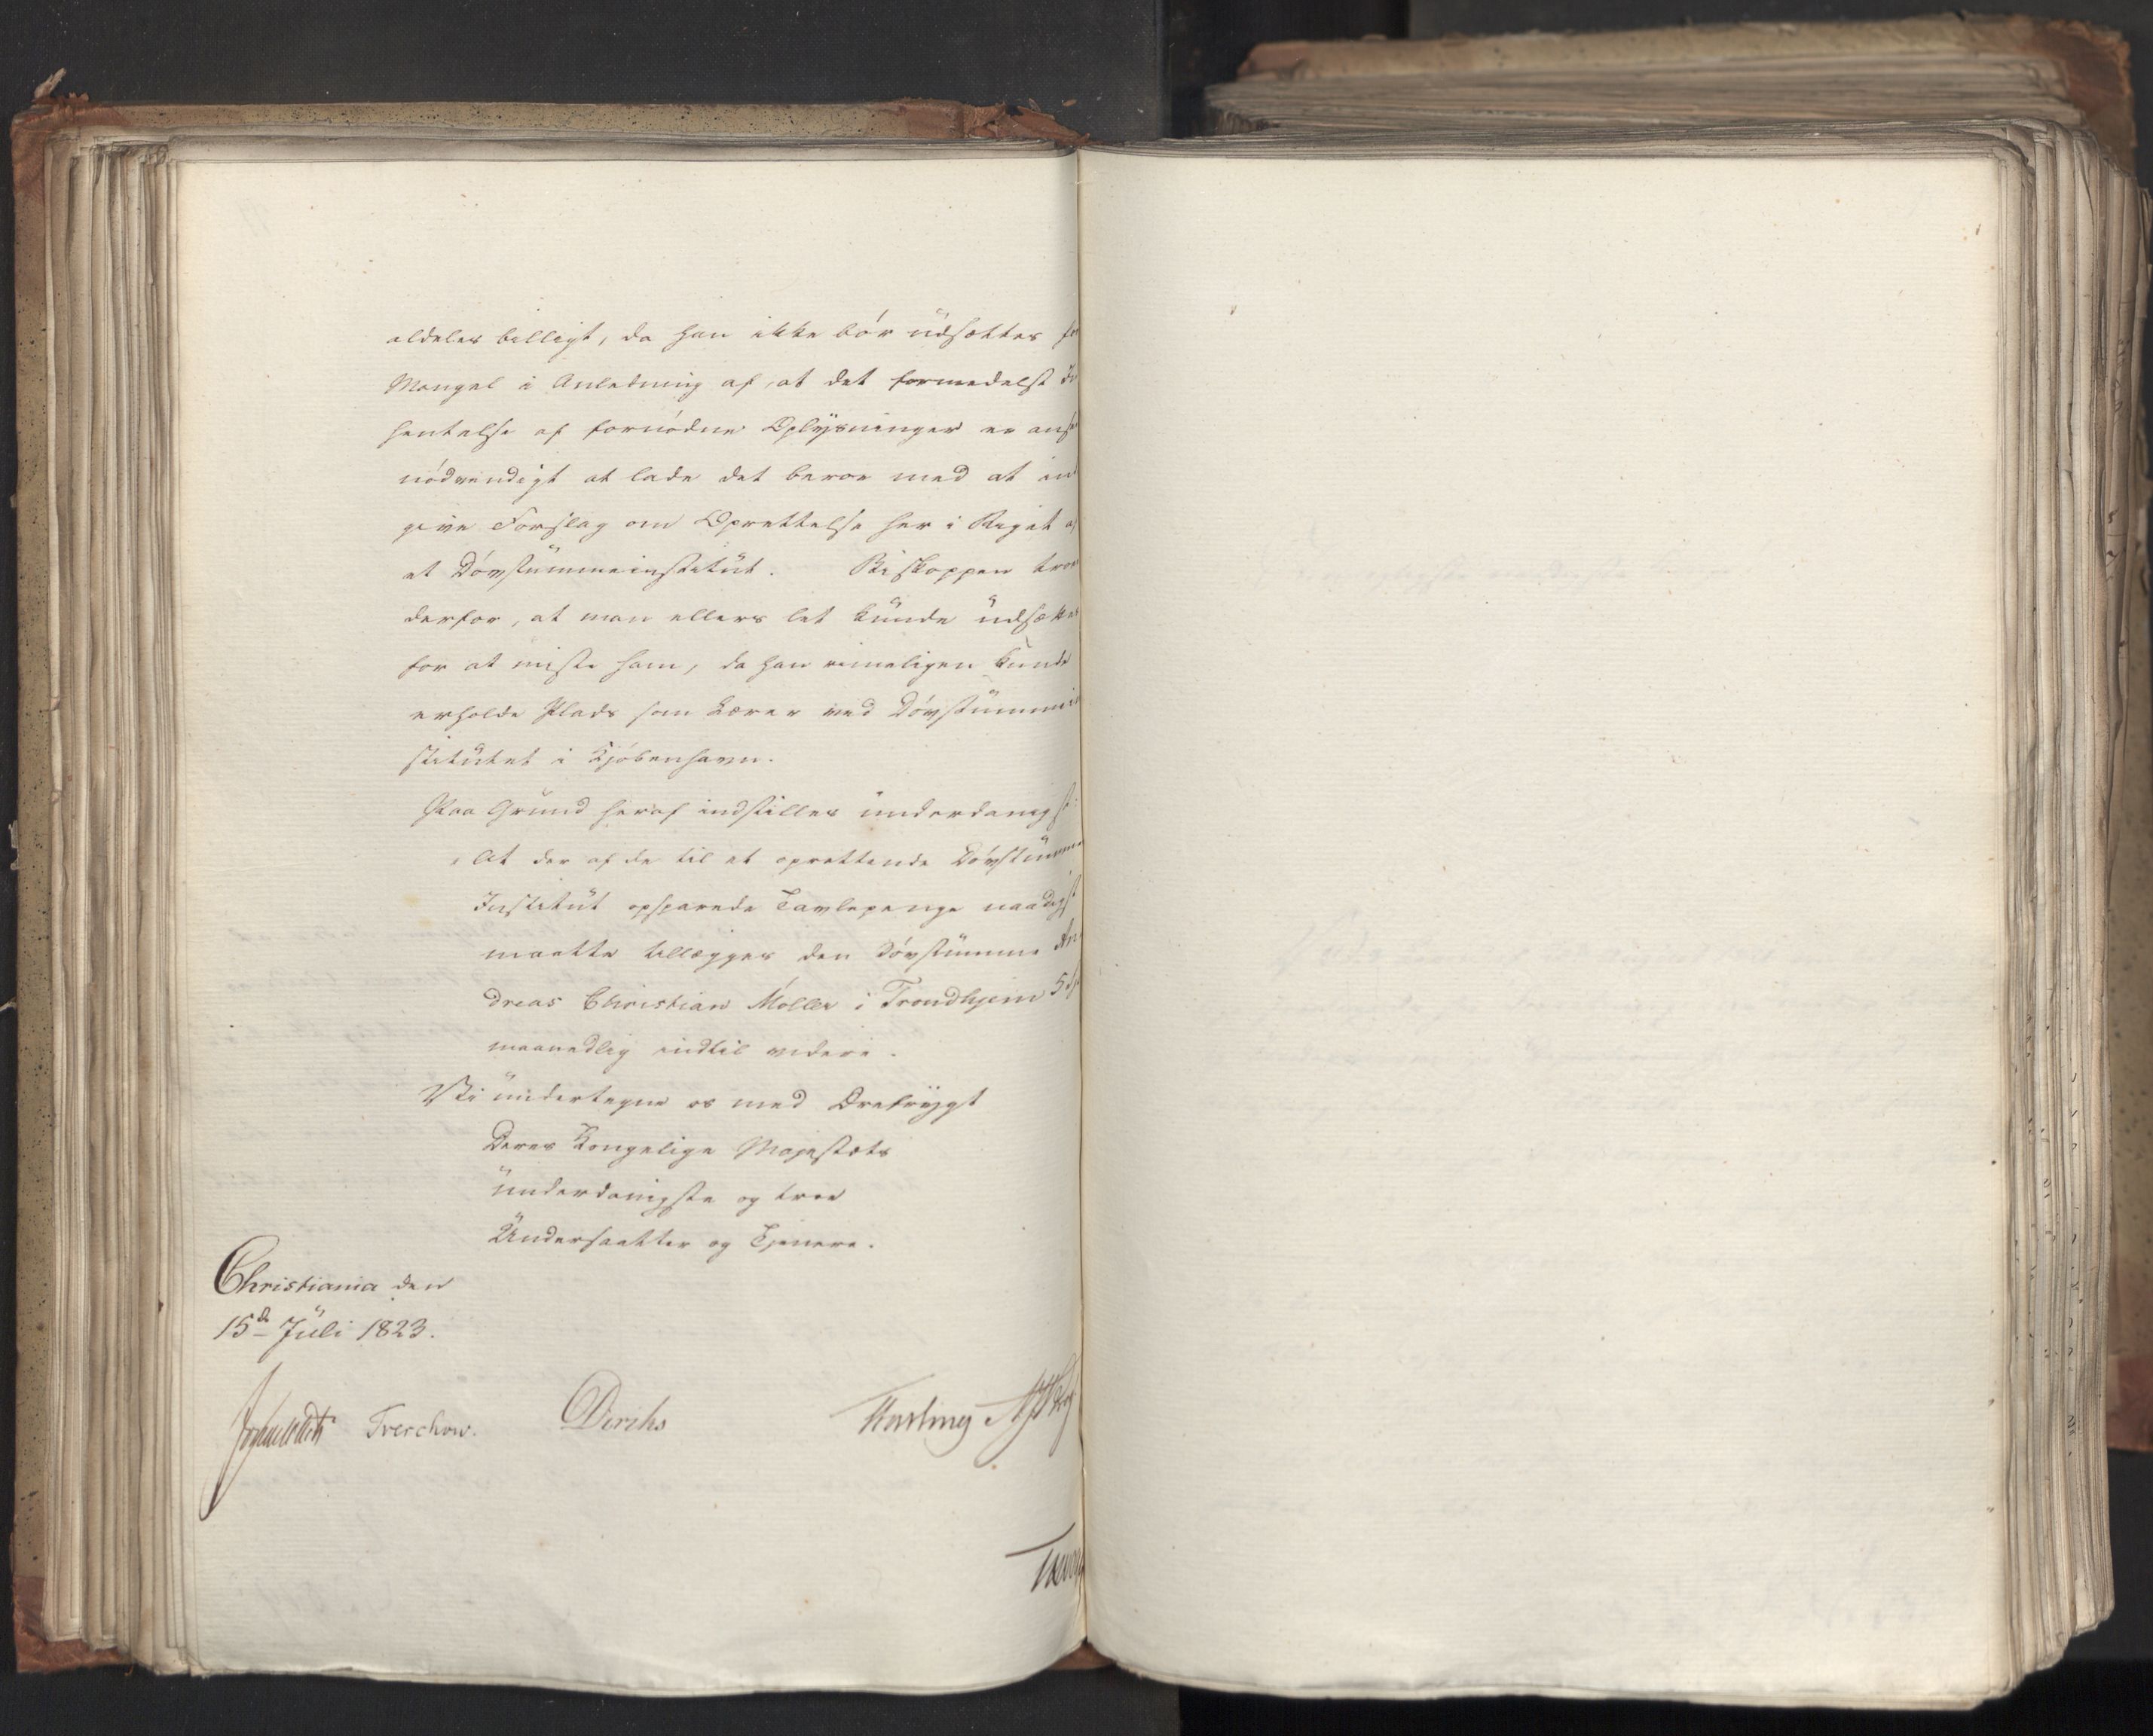 aldeles billigt, da han ikke bör udsættes for
Mangel i Anledning af, at det formedelst Ind
hentelse af fornödne Oplysninger er anseet
nödvendigt at lade det beroe med at ind
give Forslag om Oprettelse her i Riget af
et Dövstummeinstitut. Biskoppen troer
derfor, at man ellers let kunde udsættes
for at miste ham, da han rimeligen kunde
erholde Plads som Lærer ved Dövstummein
stitutet i Kjöbenhavn.
Paa Grund heraf indstilles underdanigst:
At der af de til et oprettende Dövstumme
Institut opsparede Tavlepenge naadigst
maatte tillægges den Dövstumme An
dreas Christian Möller i Trondhjem 5 Sp
maanedlig indtil videre.
Vi undertegne os med Ærefrygt
Deres Kongelige Majestæts
underdanigste og troe
Undersaatter og Tjenere.
Christiania den
15de Juli 1823.
Treschow. Diriks